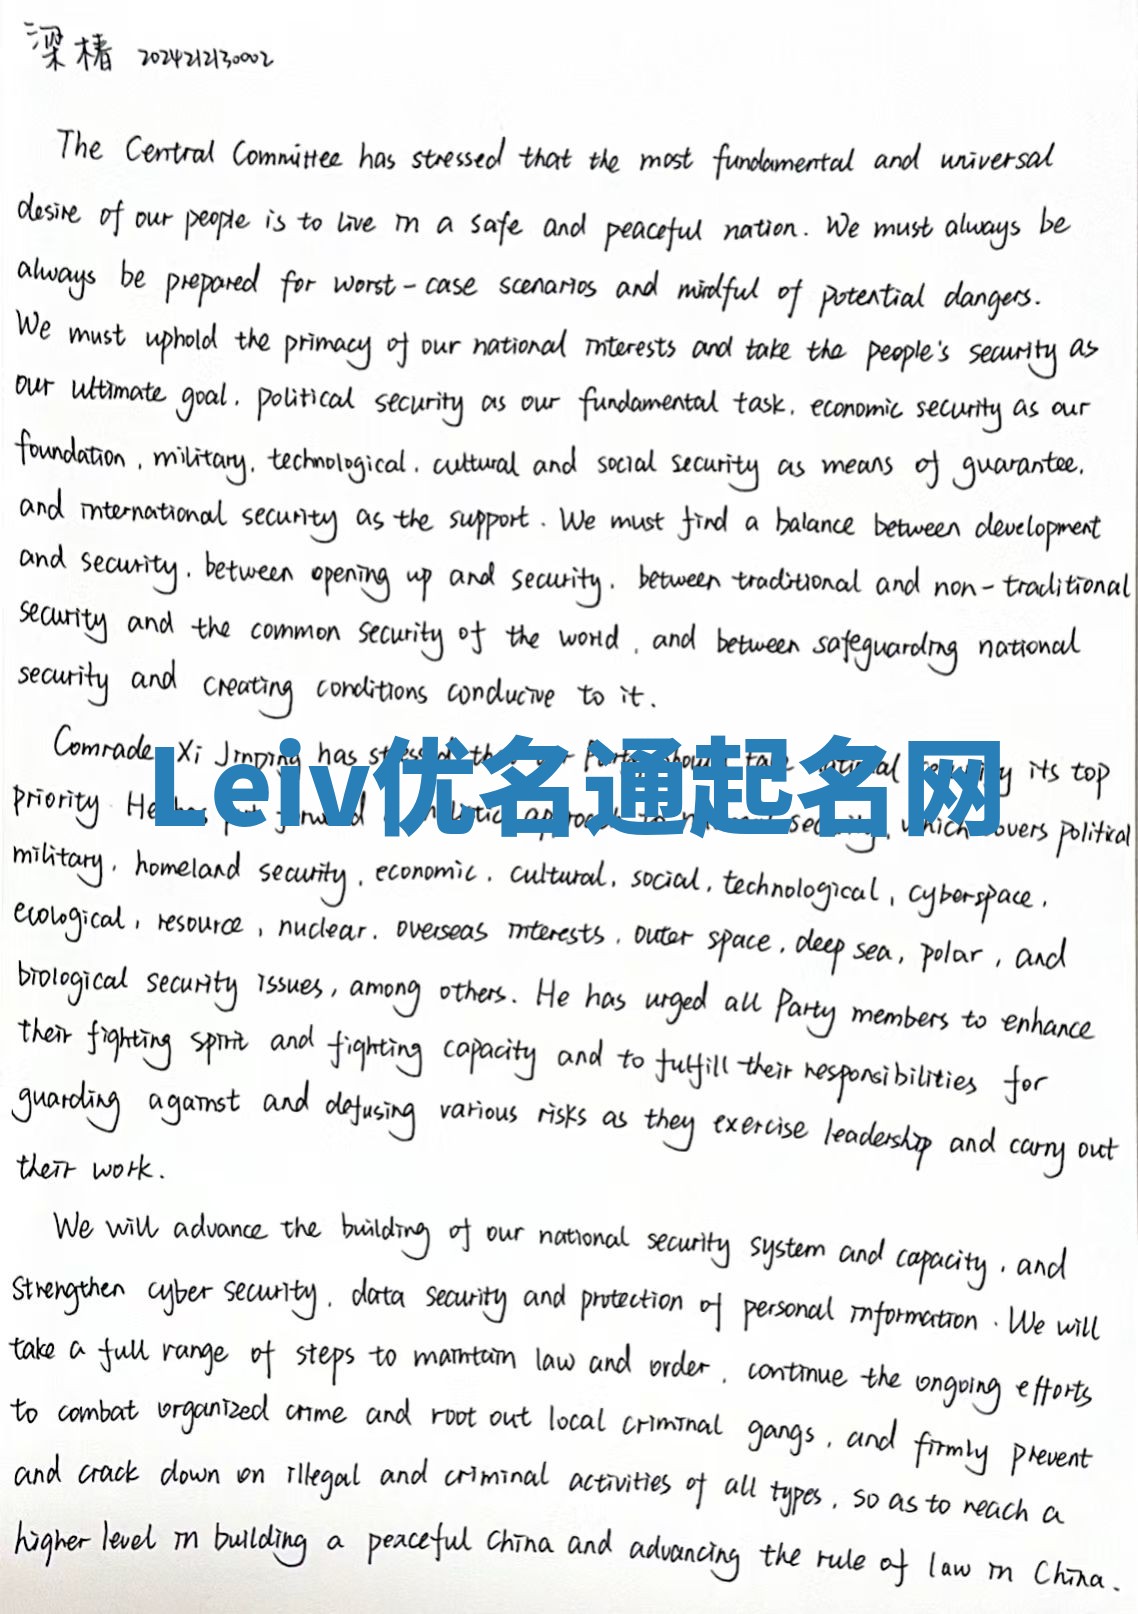 梁椿 2024212130002
The Central Committee has stressed that the most fundamental and universal
desire of our people is to live in a safe and peaceful nation. We must always be
always be prepared for worst-case scenarios and mindful of potential dangers.
We must uphold the primacy of our national interests and take the people's security as
our ultimate goal, political security as our fundamental task, economic security as our
foundation, military, technological, cultural and social security as means of guarantee,
and international security as the support. We must find a balance between development
and security, between opening up and security, between traditional and non-traditional
security and the common security of the world, and between safeguarding national
security and creating conditions conducive to it.
Comrade Xi Jinping has stressed national security its top
Leiv优名通起名网
priority He has security, which covers political
military, homeland security, economic, cultural, social, technological, cyberspace,
ecological, resource, nuclear, overseas interests, outer space, deep sea, polar, and
biological security issues, among others. He has urged all Party members to enhance
their fighting spirit and fighting capacity and to fulfill their responsibilities for
guarding against and defusing various risks as they exercise leadership and carry out
their work.
We will advance the building of our national security system and capacity, and
strengthen cyber security, data security and protection of personal information. We will
take a full range of steps to maintain law and order, continue the ongoing efforts
to combat organized crime and root out local criminal gangs, and firmly prevent
and crack down on illegal and criminal activities of all types, so as to reach a
higher level in building a peaceful China and advancing the rule of law in China.